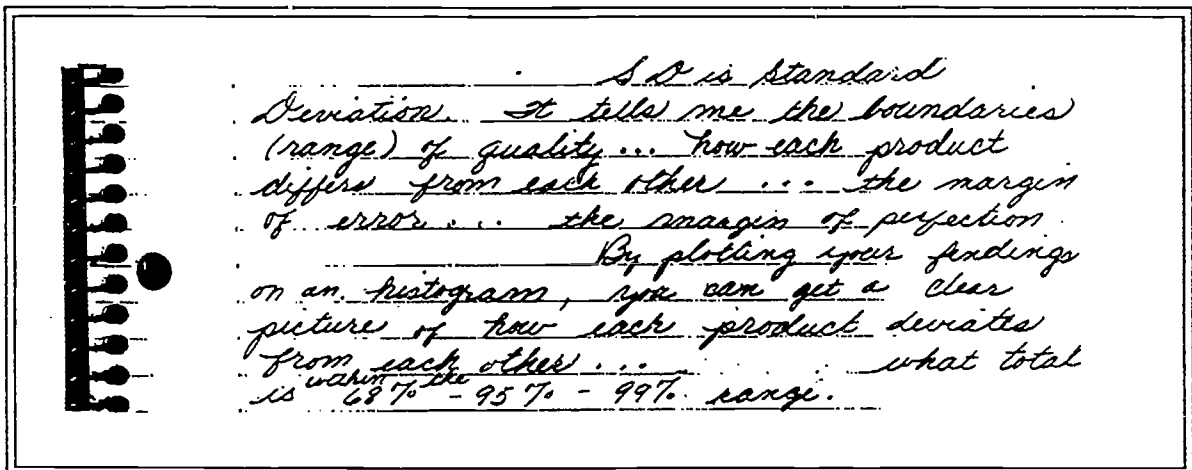 S D is Standard
Deviation. It tells me the boundaries
(range) of quality... how each product
differs from each other ... the margin
of error... the margin of perfection.
By plotting your findings
on an histogram, you can get a clear
picture of how each product deviates
from each other ... what total
is within the 68% - 95% - 99% range.